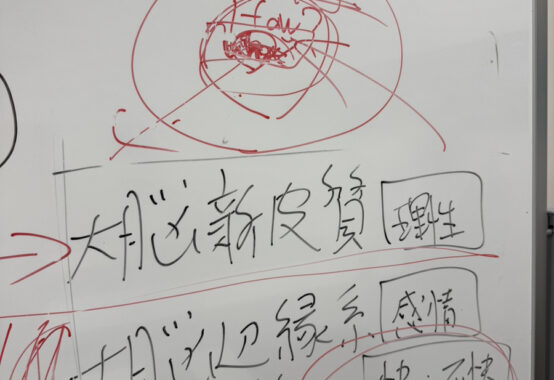 How?
大脳新皮質 理性
大脳辺縁系 感情
快・不快